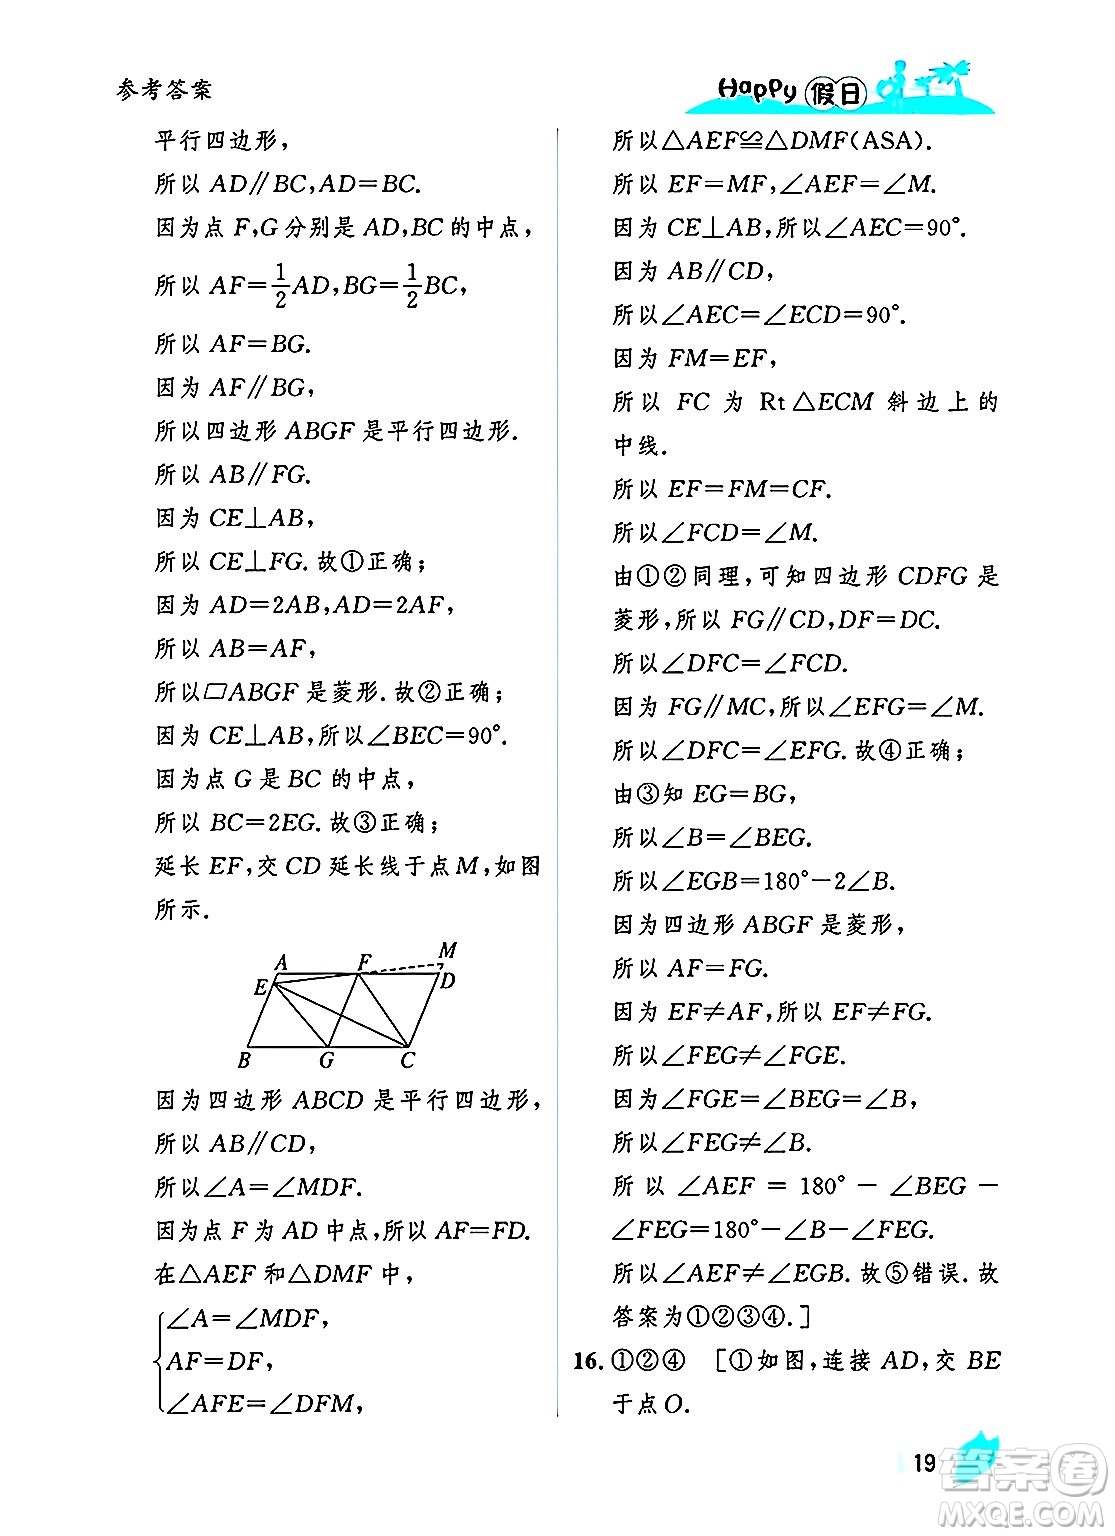 参考答案
Happy 假日
平行四边形，
所以 AD∥BC,AD=BC.
因为点 F,G 分别是 AD,BC 的中点，
所以 AF=1/2AD,BG=1/2BC,
所以 AF=BG.
因为 AF∥BG,
所以四边形 ABGF 是平行四边形.
所以 AB∥FG.
因为 CE⊥AB,
所以 CE⊥FG.故①正确；
因为 AD=2AB,AD=2AF,
所以 AB=AF,
所以▱ABGF 是菱形.故②正确；
因为 CE⊥AB,所以∠BEC=90°.
因为点 G 是 BC 的中点，
所以 BC=2EG.故③正确；
延长 EF,交 CD 延长线于点 M,如图
所示.
M
A F
E D
B G C
因为四边形 ABCD 是平行四边形，
所以 AB∥CD,
所以∠A=∠MDF.
因为点 F 为 AD 中点,所以 AF=FD.
在△AEF 和△DMF 中，
∠A=∠MDF,
AF=DF,
∠AFE=∠DFM,
所以△AEF≌△DMF(ASA).
所以 EF=MF,∠AEF=∠M.
因为 CE⊥AB,所以∠AEC=90°.
因为 AB∥CD,
所以∠AEC=∠ECD=90°.
因为 FM=EF,
所以 FC 为 Rt△ECM 斜边上的
中线.
所以 EF=FM=CF.
所以∠FCD=∠M.
由①②同理，可知四边形 CDFG 是
菱形,所以 FG∥CD,DF=DC.
所以∠DFC=∠FCD.
因为 FG∥MC,所以∠EFG=∠M.
所以∠DFC=∠EFG.故④正确；
由③知 EG=BG,
所以∠B=∠BEG.
所以∠EGB=180°-2∠B.
因为四边形 ABGF 是菱形，
所以 AF=FG.
因为 EF≠AF,所以 EF≠FG.
所以∠FEG≠∠FGE.
因为∠FGE=∠BEG=∠B,
所以∠FEG≠∠B.
所以 ∠AEF = 180° - ∠BEG -
∠FEG=180°-∠B-∠FEG.
所以∠AEF≠∠EGB.故⑤错误.故
答案为①②③④.]
16.①②④ [①如图,连接 AD,交 BE
于点 O.
19
答案圈
MXQE.COM